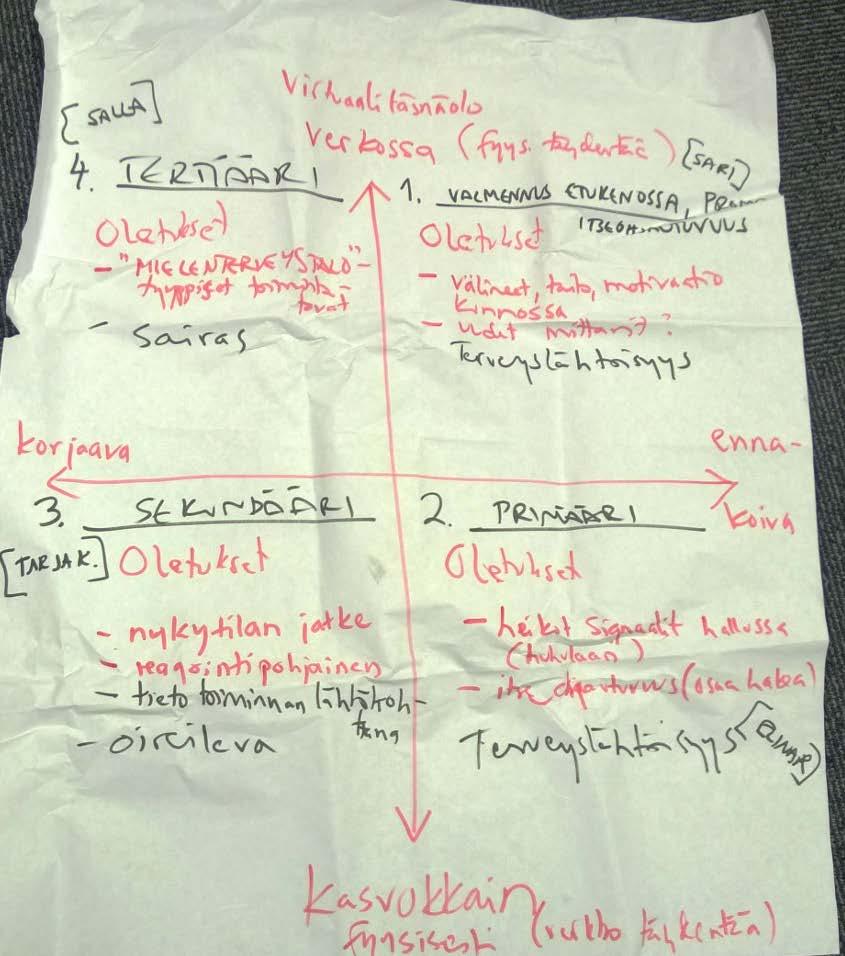 Virtuaalitäsnäolo
verkossa (fyys. täydentää)
[SALLA]
4. TERTIÄÄRI
Oletukset
- "MIELENTERVEYSTALO"-
tyyppiset toiminta-
tavat
- Sairas
[SARI]
1. VALMENNUS ETUKENOSSA,
Oletukset
- välineet, taito, motivaatio
kunnossa
- uudet mittarit?
Terveyslähtöisyys
korjaava
enna-
koiva
3. SEKUNDÄÄRI
[TARJA K.] Oletukset
- nykytilan jatke
- reagointipohjainen
- tieto toiminnan lähtökoh-
tana
- oireileva
2. PRIMÄÄRI
Oletukset
- heikot signaalit hallussa
- itse (osaa hakea)
Terveyslähtöisyys
Kasvokkain
fyysisesti (verkko täydentää)